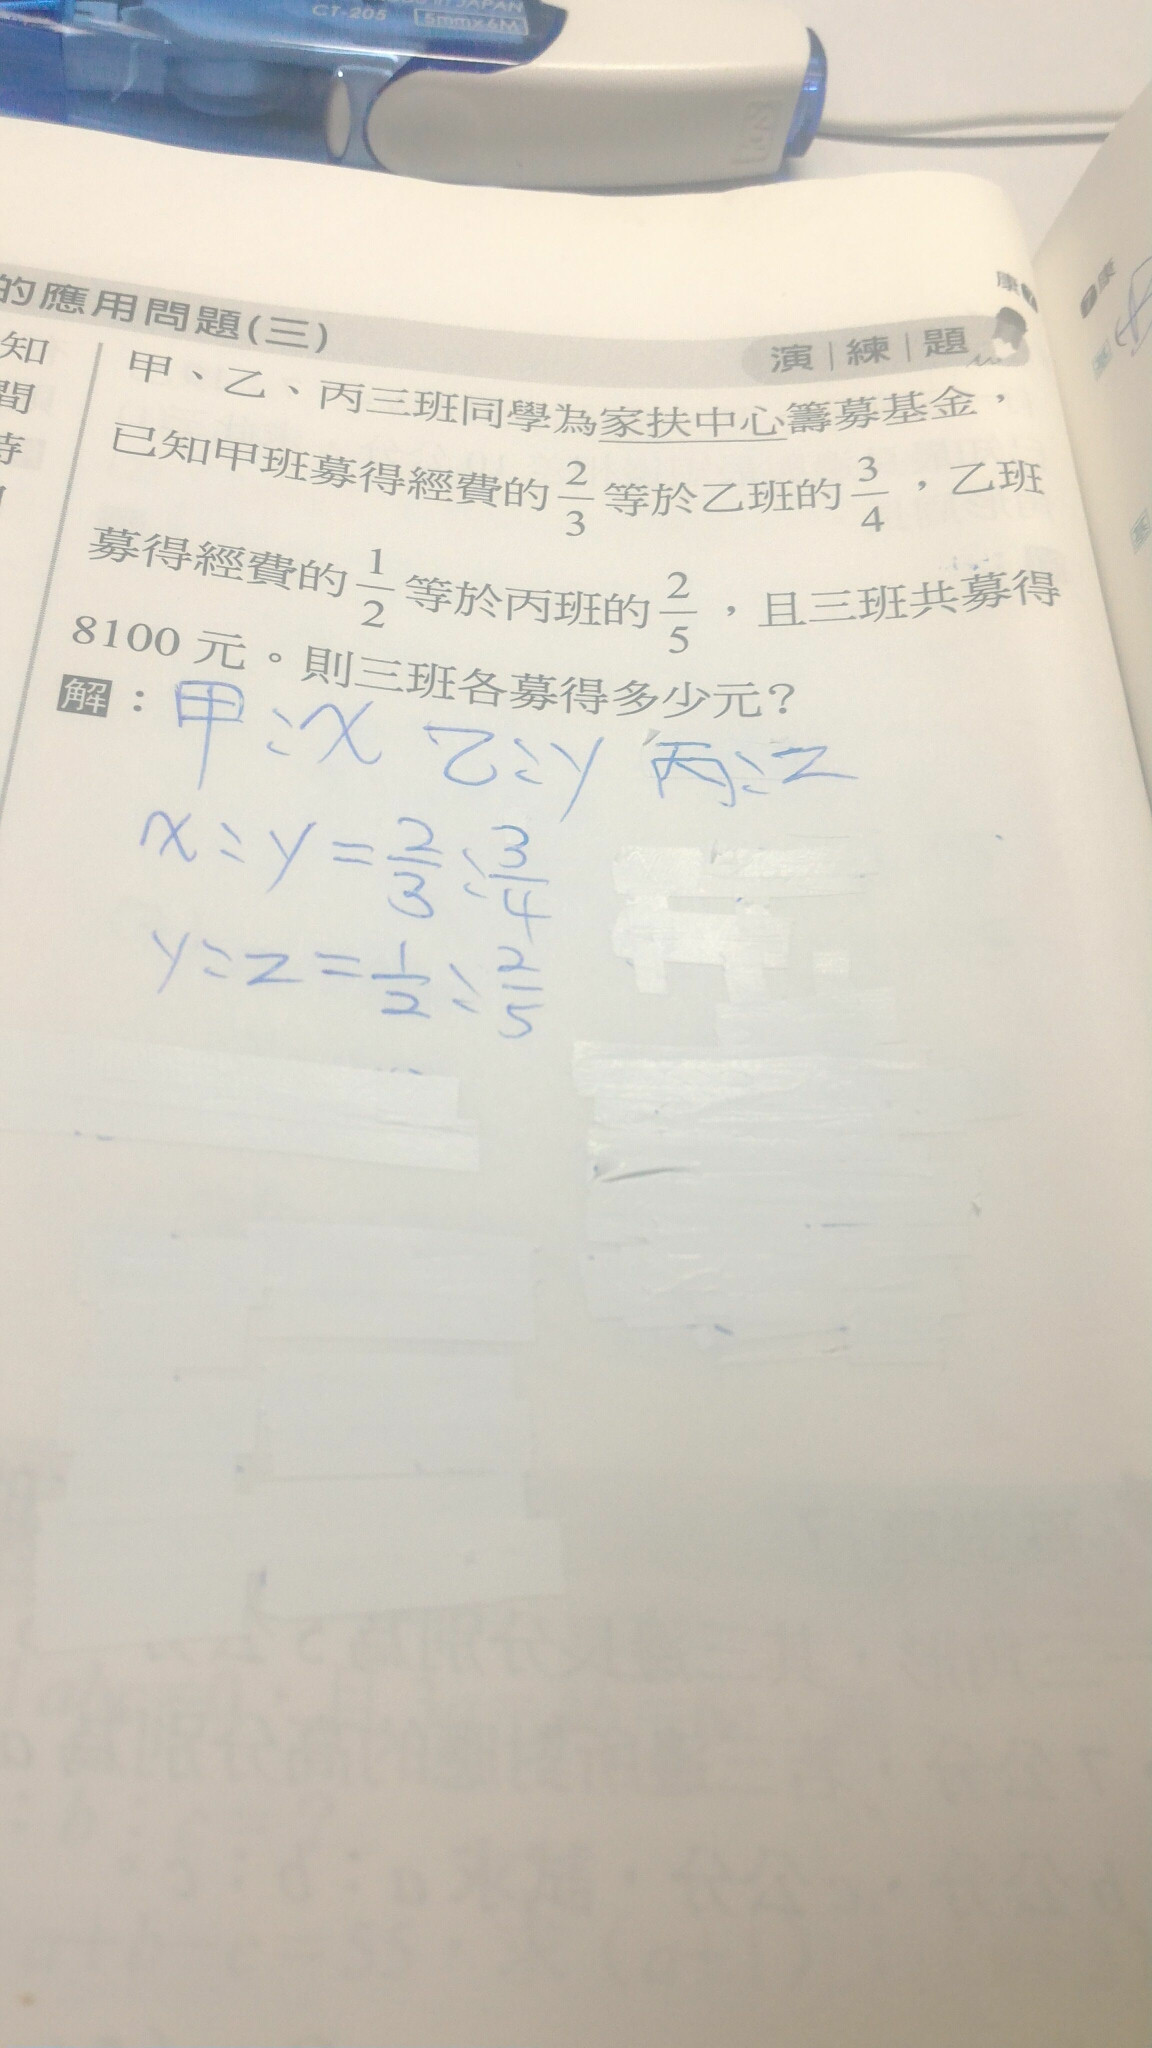 IN JAPAN
CT-205 5mm×6M
康7
康7
的應用問題(三) 演|練|題
知
間
時
甲、乙、丙三班同學為家扶中心籌募基金，
已知甲班募得經費的2/3等於乙班的3/4，乙班
募得經費的1/2等於丙班的2/5，且三班共募得
8100元。則三班各募得多少元？
解：甲:x 乙:y 丙:z
x:y=2/3:3/4
y:z=1/2:2/5